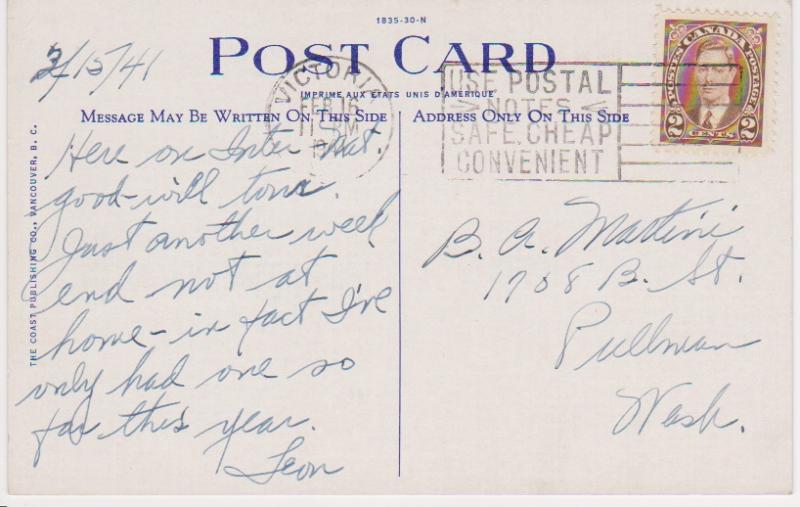 1835-30-N
POST CARD
IMPRIME AUX ETATS UNIS D'AMERIQUE
MESSAGE MAY BE WRITTEN ON THIS SIDE
ADDRESS ONLY ON THIS SIDE
THE COAST PUBLISHING CO., VANCOUVER, B. C.
VICTORIA
FEB 16
USE POSTAL
NOTES
SAFE, CHEAP
CONVENIENT
POSTES CANADA POSTAGE
2 CENTS 2
2/15/41
Here on Inter Nat.
good-will tour.
Just another week
end not at
home-in fact I've
only had one so
far this year.
Leon
B. A. Martini
1708 B. St.
Pullman
Wash.